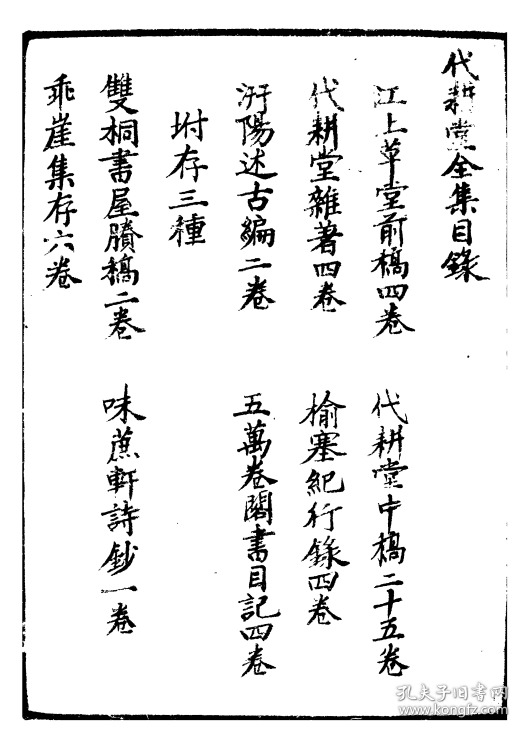 代耕堂全集目錄
江上草堂前稿四卷　代耕堂中稿二十五卷
代耕堂雜著四卷　榆塞紀行錄四卷
汧陽述古編二卷　五萬卷閣書目記四卷
坿存三種
雙桐書屋賸稿二卷　味蔗軒詩鈔一卷
乖崖集存六卷
孔夫子旧书网
www.kongfz.com